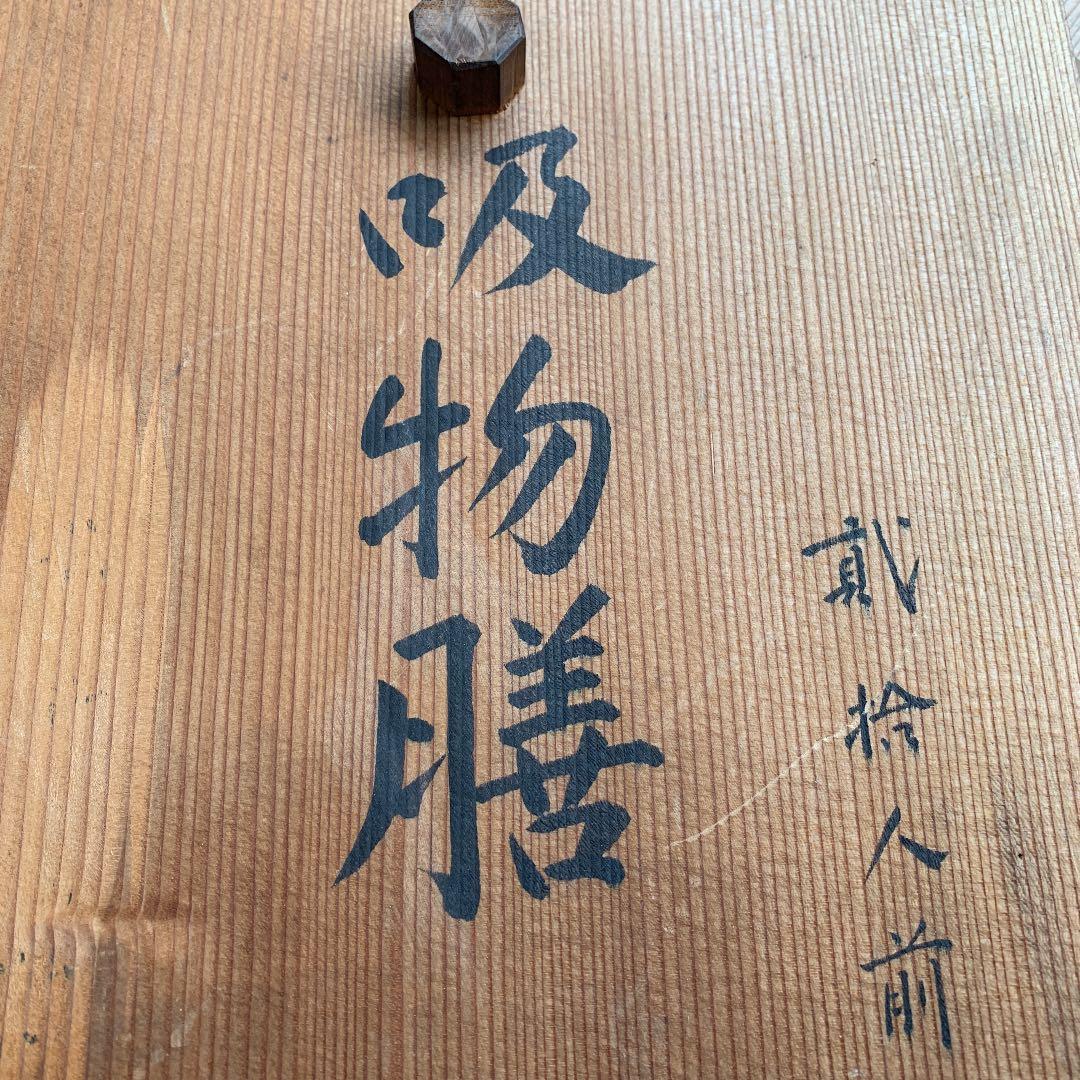 貳拾人前
吸物膳